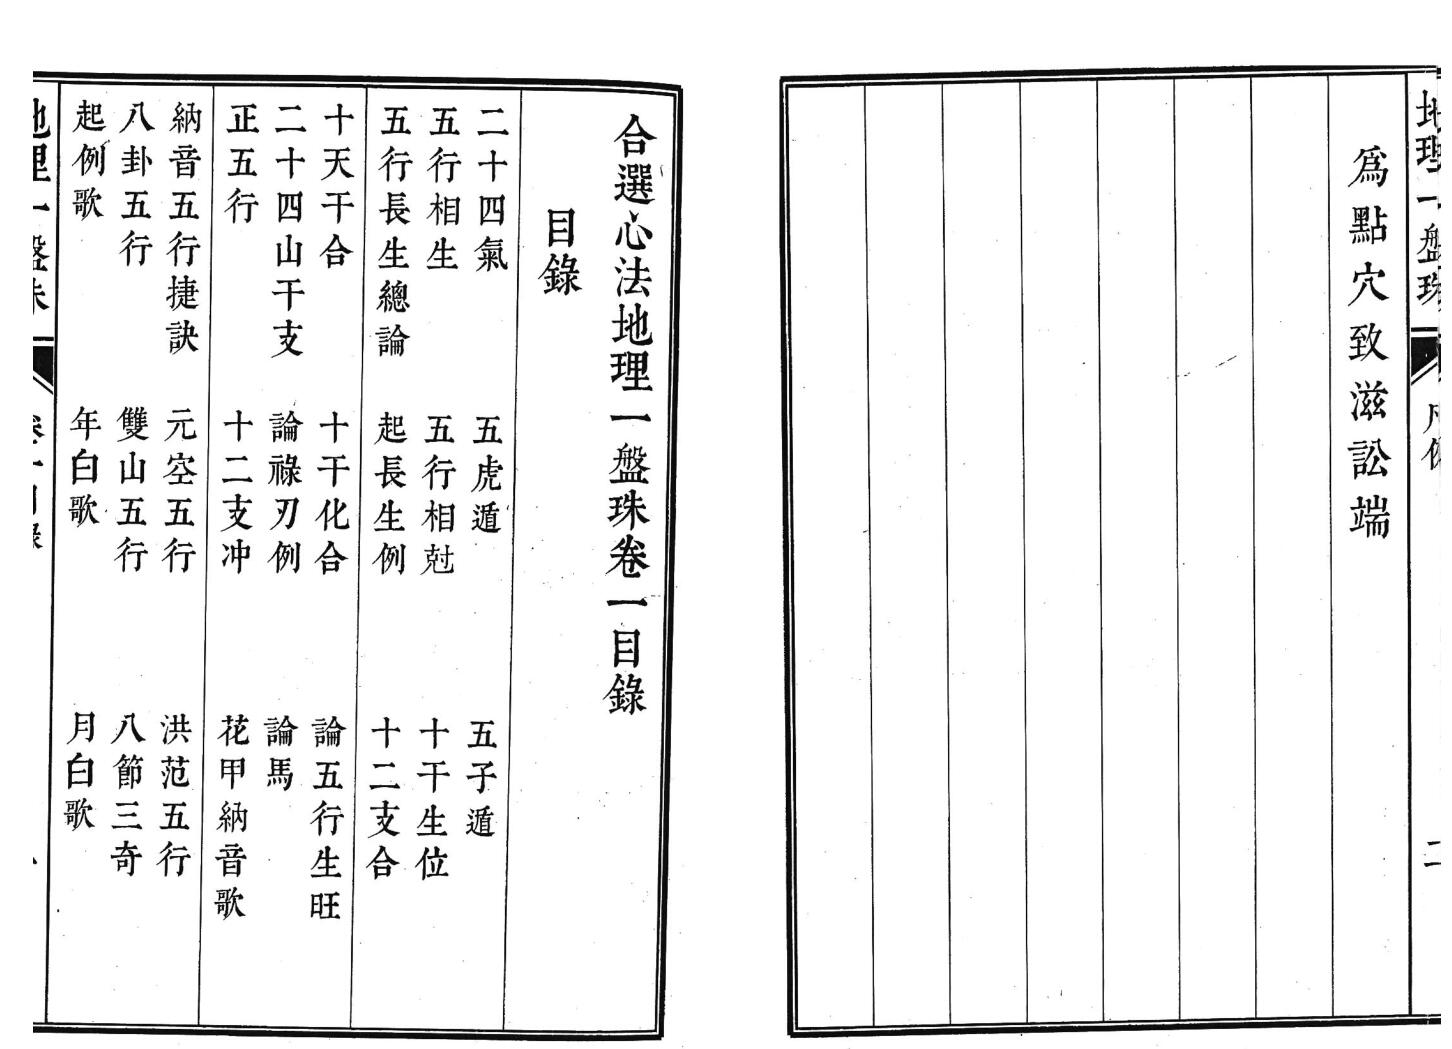 地理一盤珠 凡例 二
爲點穴致滋訟端
合選心法地理一盤珠卷一目錄
目錄
二十四氣 五虎遁 五子遁
五行相生 五行相尅 十干生位
五行長生總論 起長生例 十二支合
十天干合 十干化合 論五行生旺
二十四山干支 論祿刃例 論馬
正五行 十二支冲 花甲納音歌
納音五行捷訣 元空五行 洪范五行
八卦五行 雙山五行 八節三奇
起例歌 年白歌 月白歌
地理一盤珠 卷一目錄